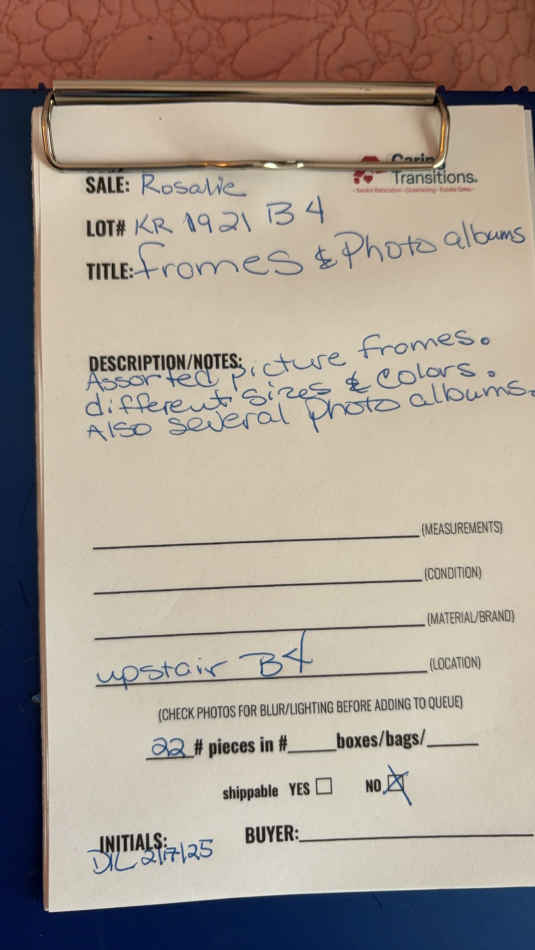 Caring
Transitions.
SALE: Rosalie
LOT# KR 1921 B4
TITLE: frames & Photo albums
DESCRIPTION/NOTES:
Assorted picture frames.
different sizes & colors.
Also several photo albums.
(MEASUREMENTS)
(CONDITION)
(MATERIAL/BRAND)
upstair B4 (LOCATION)
(CHECK PHOTOS FOR BLUR/LIGHTING BEFORE ADDING TO QUEUE)
22 # pieces in #_____boxes/bags/_____
shippable YES ☐ NO ☒
INITIALS: BUYER:
2/17/25